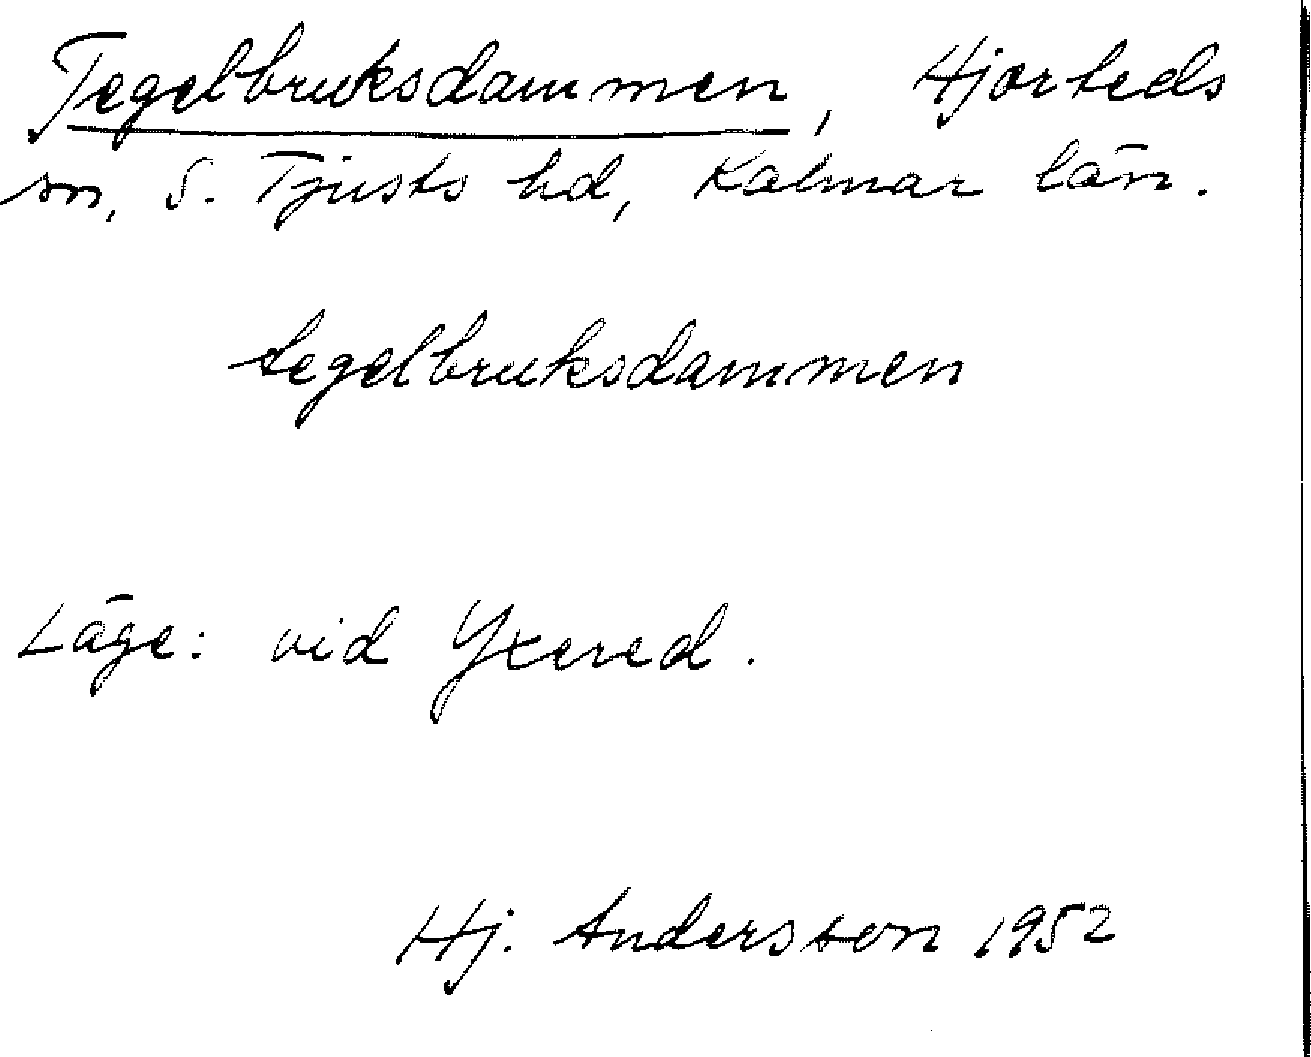 Tegelbruksdammen, Hjorteds
sn, S. Tjusts hd, Kalmar län.
tegelbruksdammen
Läge: vid Yxered.
Hj. Andersson 1952